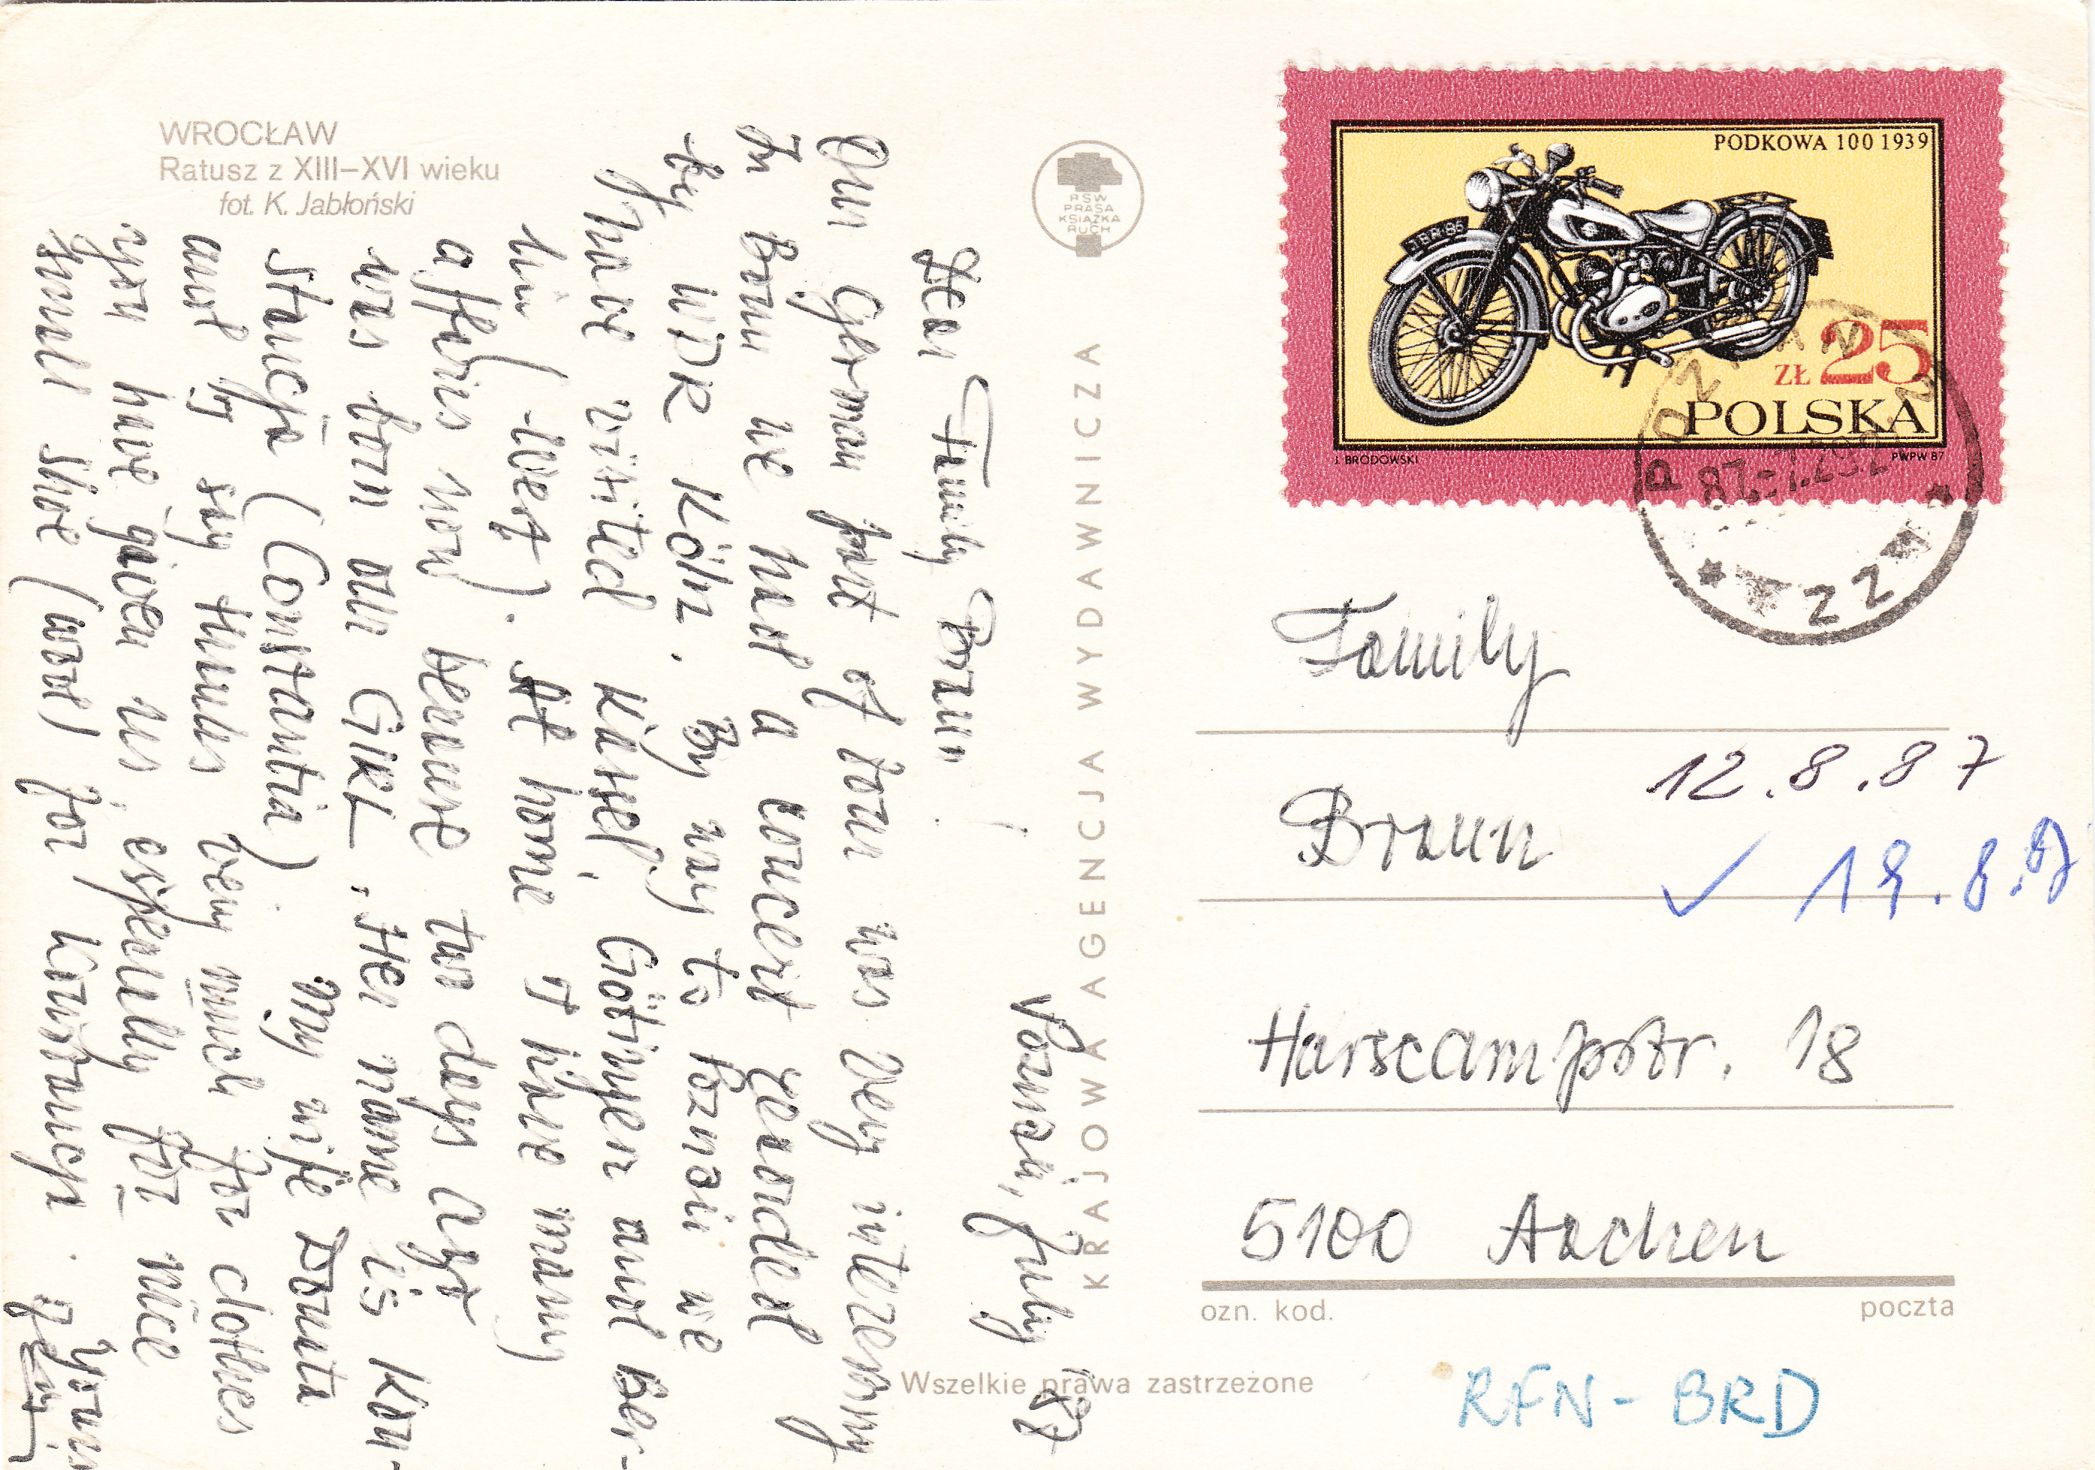 WROCŁAW
Ratusz z XIII–XVI wieku
fot. K. Jabłoński
RSW
PRASA
KSIĄŻKA
RUCH
KRAJOWA AGENCJA WYDAWNICZA
Poznań, July '87
Dear Family Braun!
Our German part of tour was very interesing
In Bonn we had a concert recorded
by WDR Köln. By way to Poznań we
have visited Kassel, Götingen and Ber-
lin (-West). At home I have many
affairs now because two days ago
was born our GIRL. Her name is Kon-
stancja (Constantia). My wife Dorota
and I say thanks very much for clothes
you have given us, especially for nice
small shoe (wool) for Konstancja.
Yours
PODKOWA 100 1939
ZŁ 25
POLSKA
J. BRODOWSKI
PWPW 87
POZNAŃ
ZZ
Family
12.8.87
Braun
✓ 19.8.87
Harscampstr. 18
5100 Aachen
ozn. kod.
poczta
Wszelkie prawa zastrzeżone
RFN - BRD